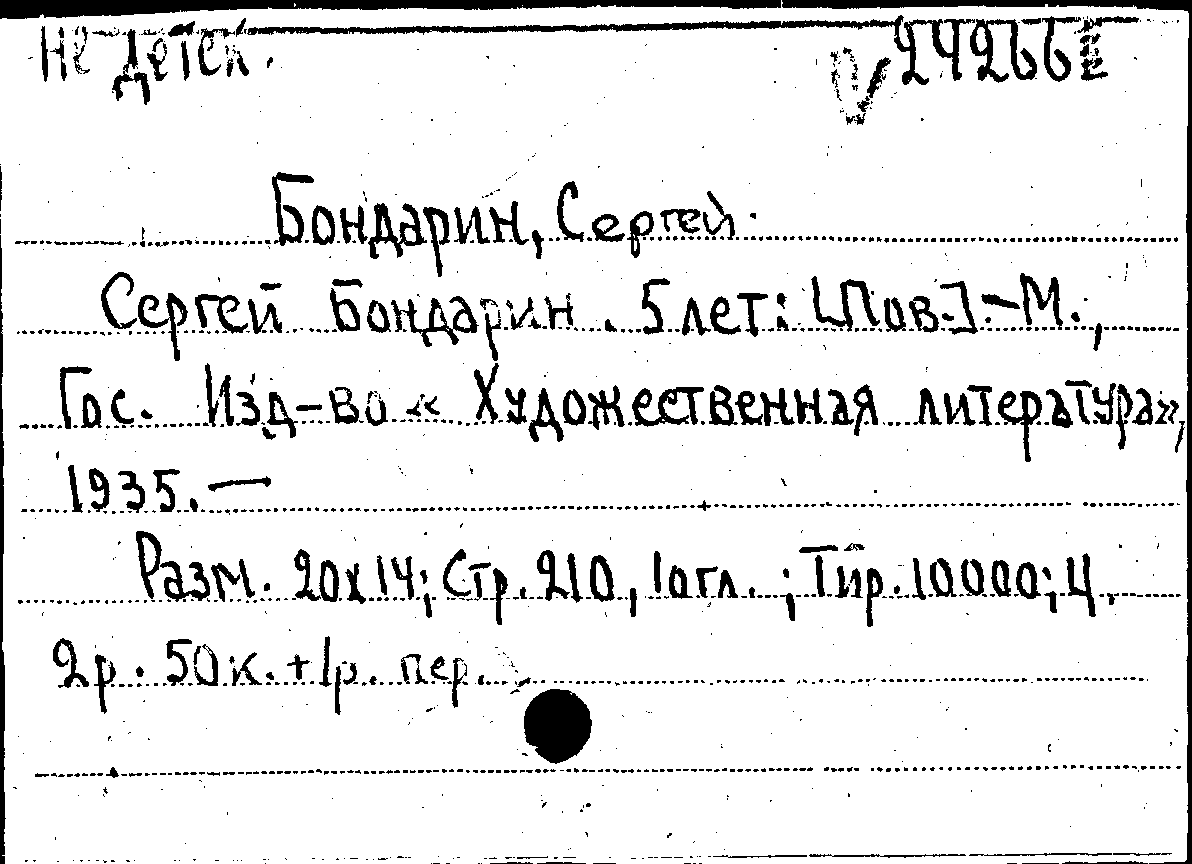 Не детск. 24266
Бондарин, Сергей.
Сергей Бондарин. 5 лет: [Пов.].-М.,
Гос. Изд-во « Художественная литература»,
1935. —
Разм. 20х14; Стр. 210, 1 огл.; Тир. 10000; Ц.
2р. 50к. + 1р. пер.